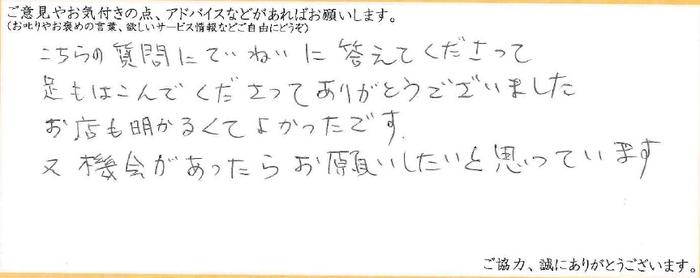 ご意見やお気付きの点、アドバイスなどがあればお願いします。
(お叱りやお褒めの言葉、欲しいサービス情報などご自由にどうぞ)
こちらの質問にていねいに答えてくださって
足もはこんでくださってありがとうございました
お店も明かるくてよかったです.
又機会があったらお願いしたいと思っています
ご協力、誠にありがとうございます。